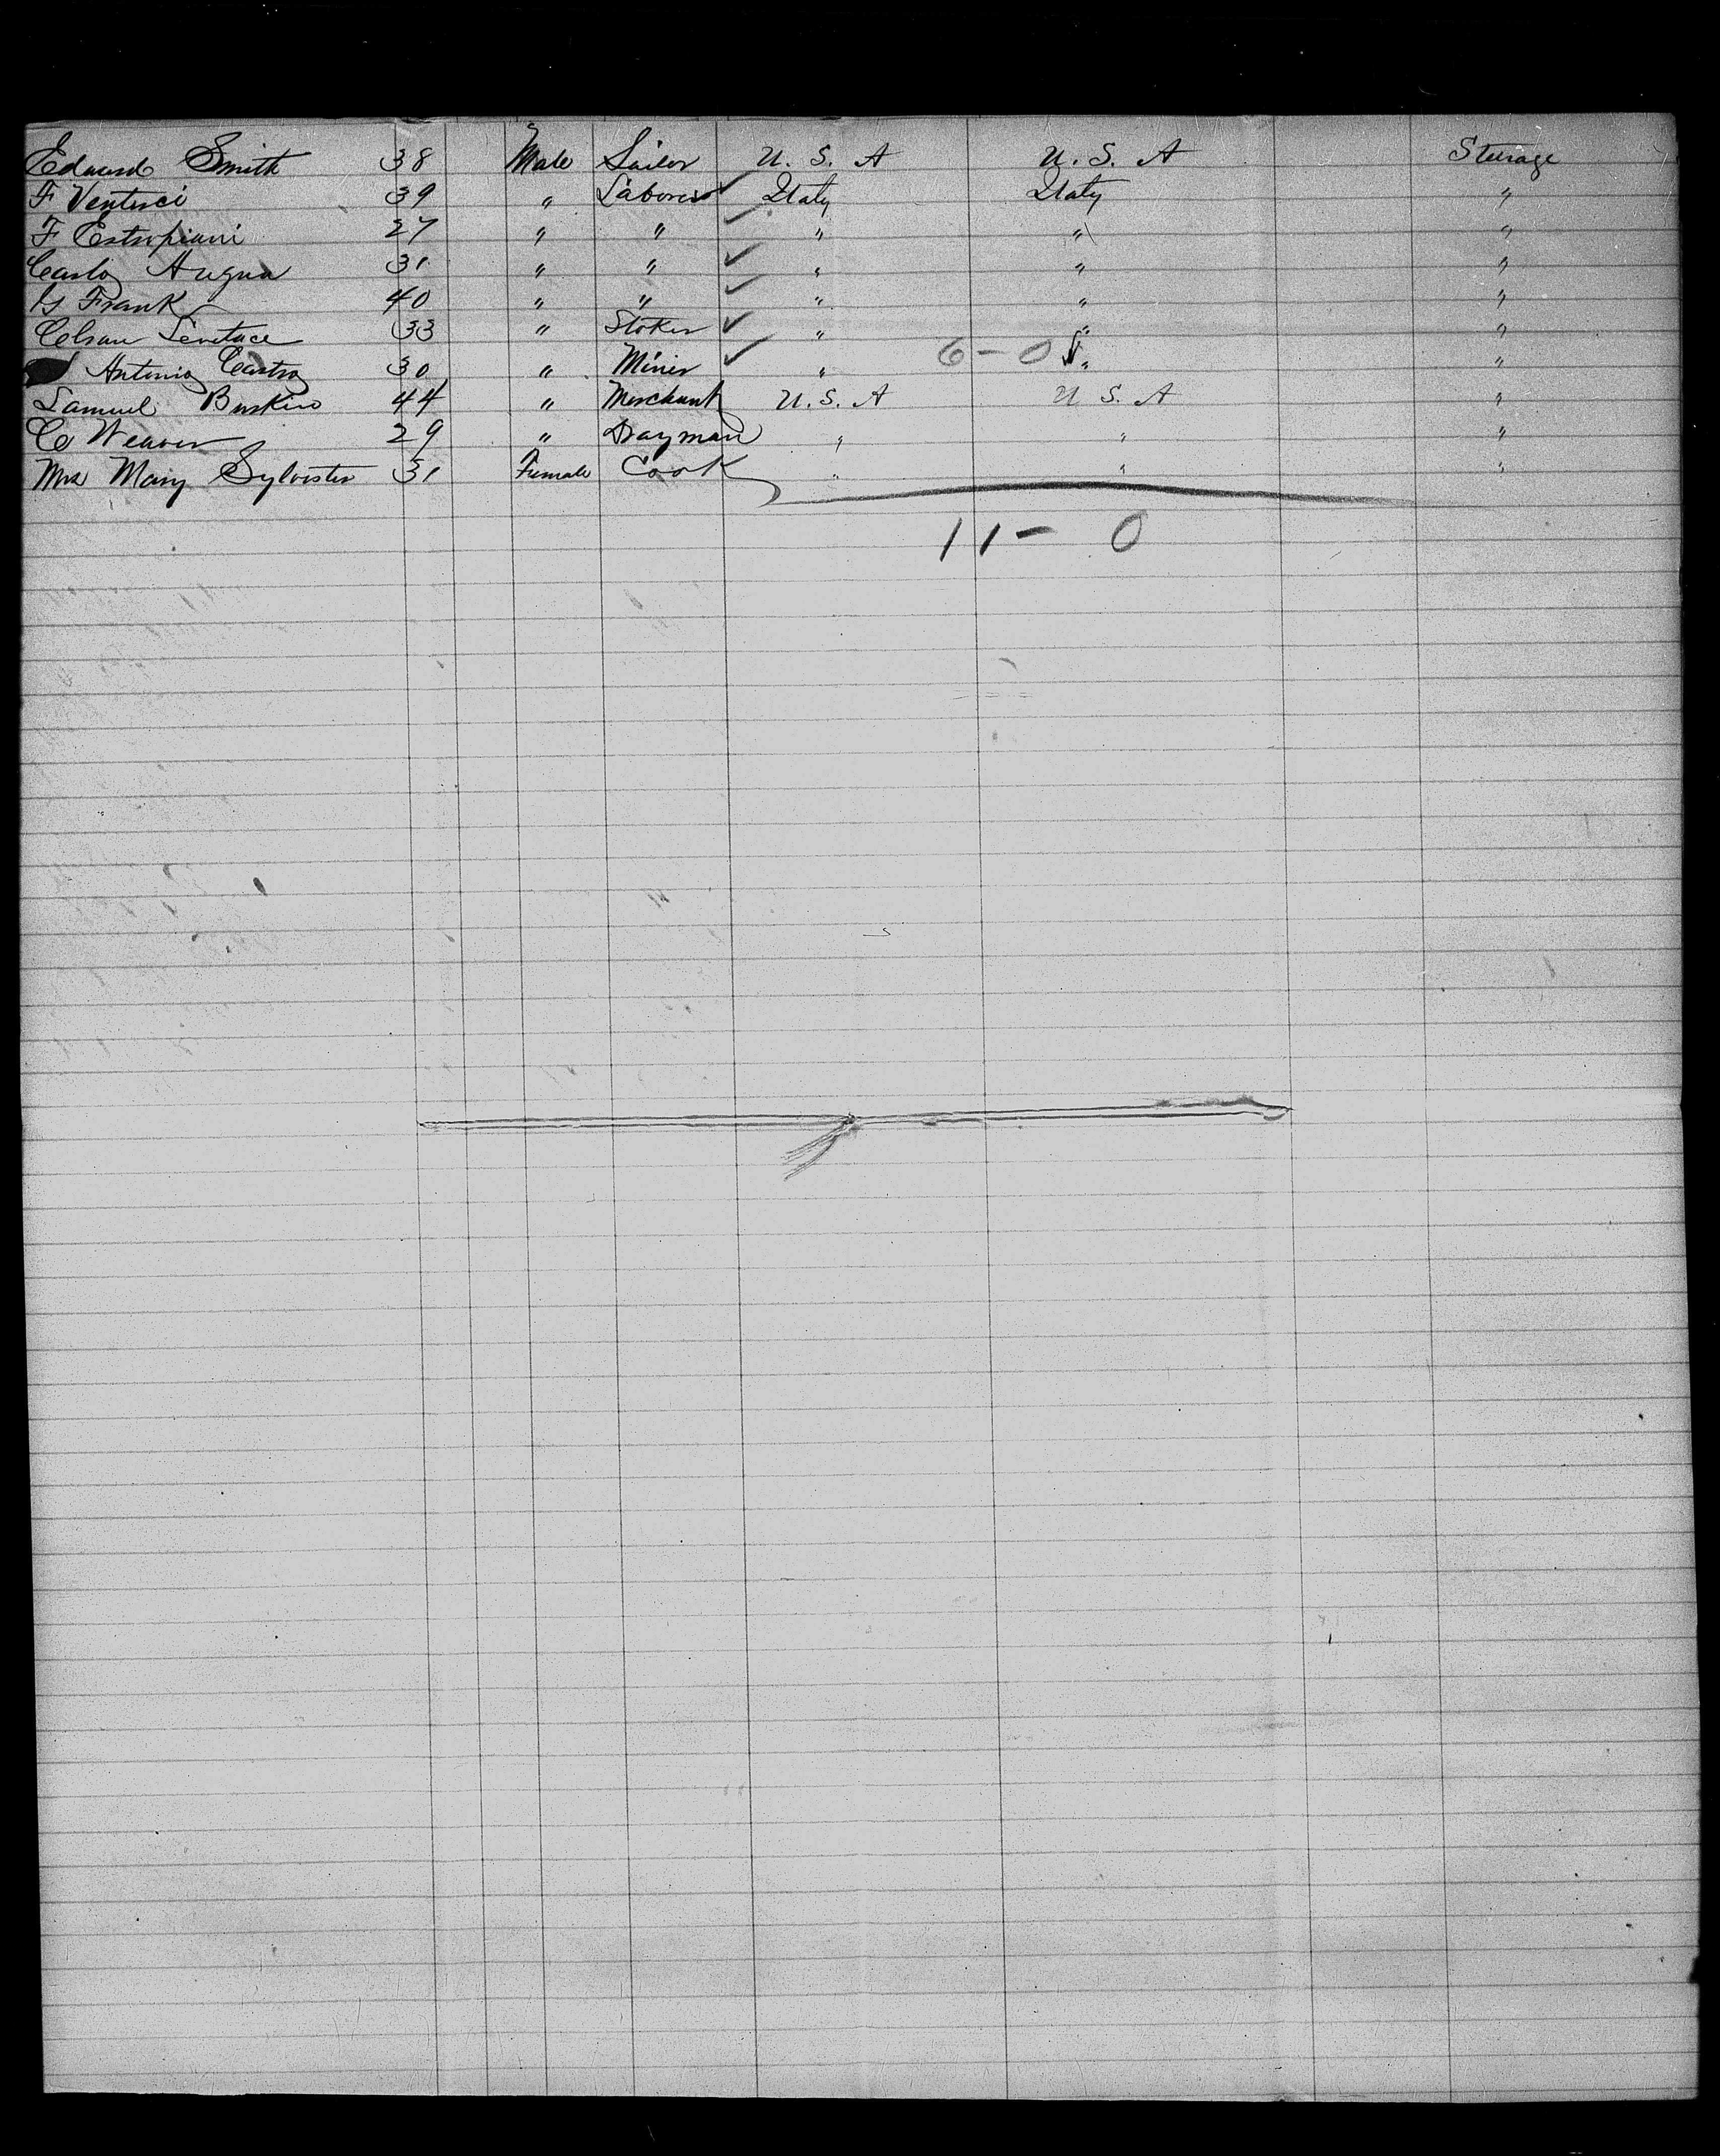 Edward Smith 38 Male Sailor U. S. A U. S. A Steerage
F Ventusci 39 " Laborer ✓ Italy Italy "
F Estropiani 27 " " ✓ " " "
Carlo 31 " " ✓ " " "
G Frank 40 " " ✓ " " "
33 " Stoker ✓ " " "
Antonio Castro 30 " Miner ✓ " 6 - 0 " "
Samuel Buskins 44 " Merchant U. S. A U S. A "
C Weaver 29 " Drayman " " "
Mrs Mary Sylvester 31 Female Cook " " "
11 - 0